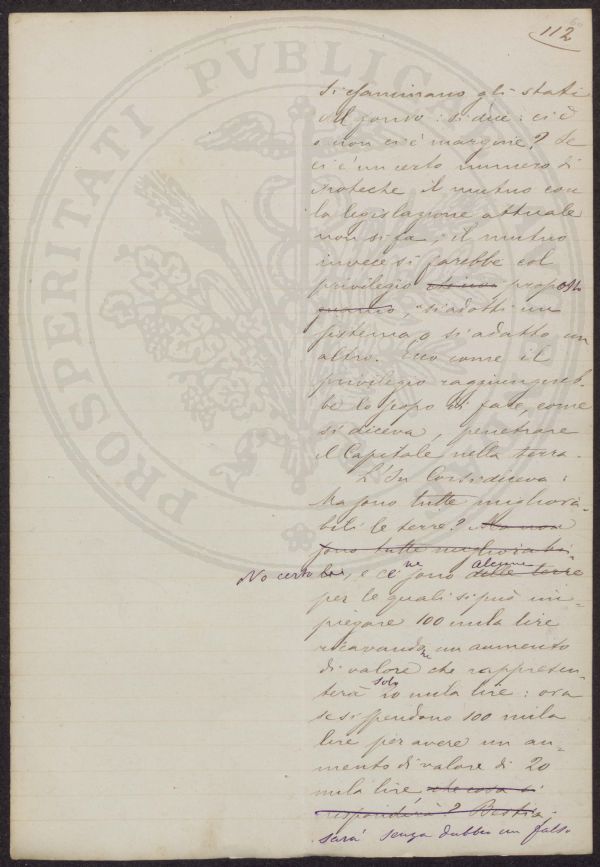 112
60
PROSPERITATI PVBLICAE
Si esaminano gli stati
del fondo: si dice: ci è
o non ci è margine? Se
ci è un certo numero di
ipoteche il mutuo con
la legislazione attuale
non si fa, il mutuo
invece si farebbe col
privilegio propo
, si adotti un
sistema o si adatto un
altro. Ecco come il
privilegio raggiungereb
be lo scopo di fare, come
si diceva, penetrare
il Capitale nella terra.
L'On Corsi diceva:
Ma sono tutte migliora
bili le terre? Ma non
sono tutte migliorabi
No certo li, e ce ne sono alcune delle terre
per le quali si può im=
piegare 100 mila lire
ricavandone un aumento
di valore che rappresen
terà solo 20 mila lire: ora
se si spendono 100 mila
lire per avere un au=
mento di valore di 20
mila lire che cosa si
risponderà? Bestia
sarà senza dubbio un falso